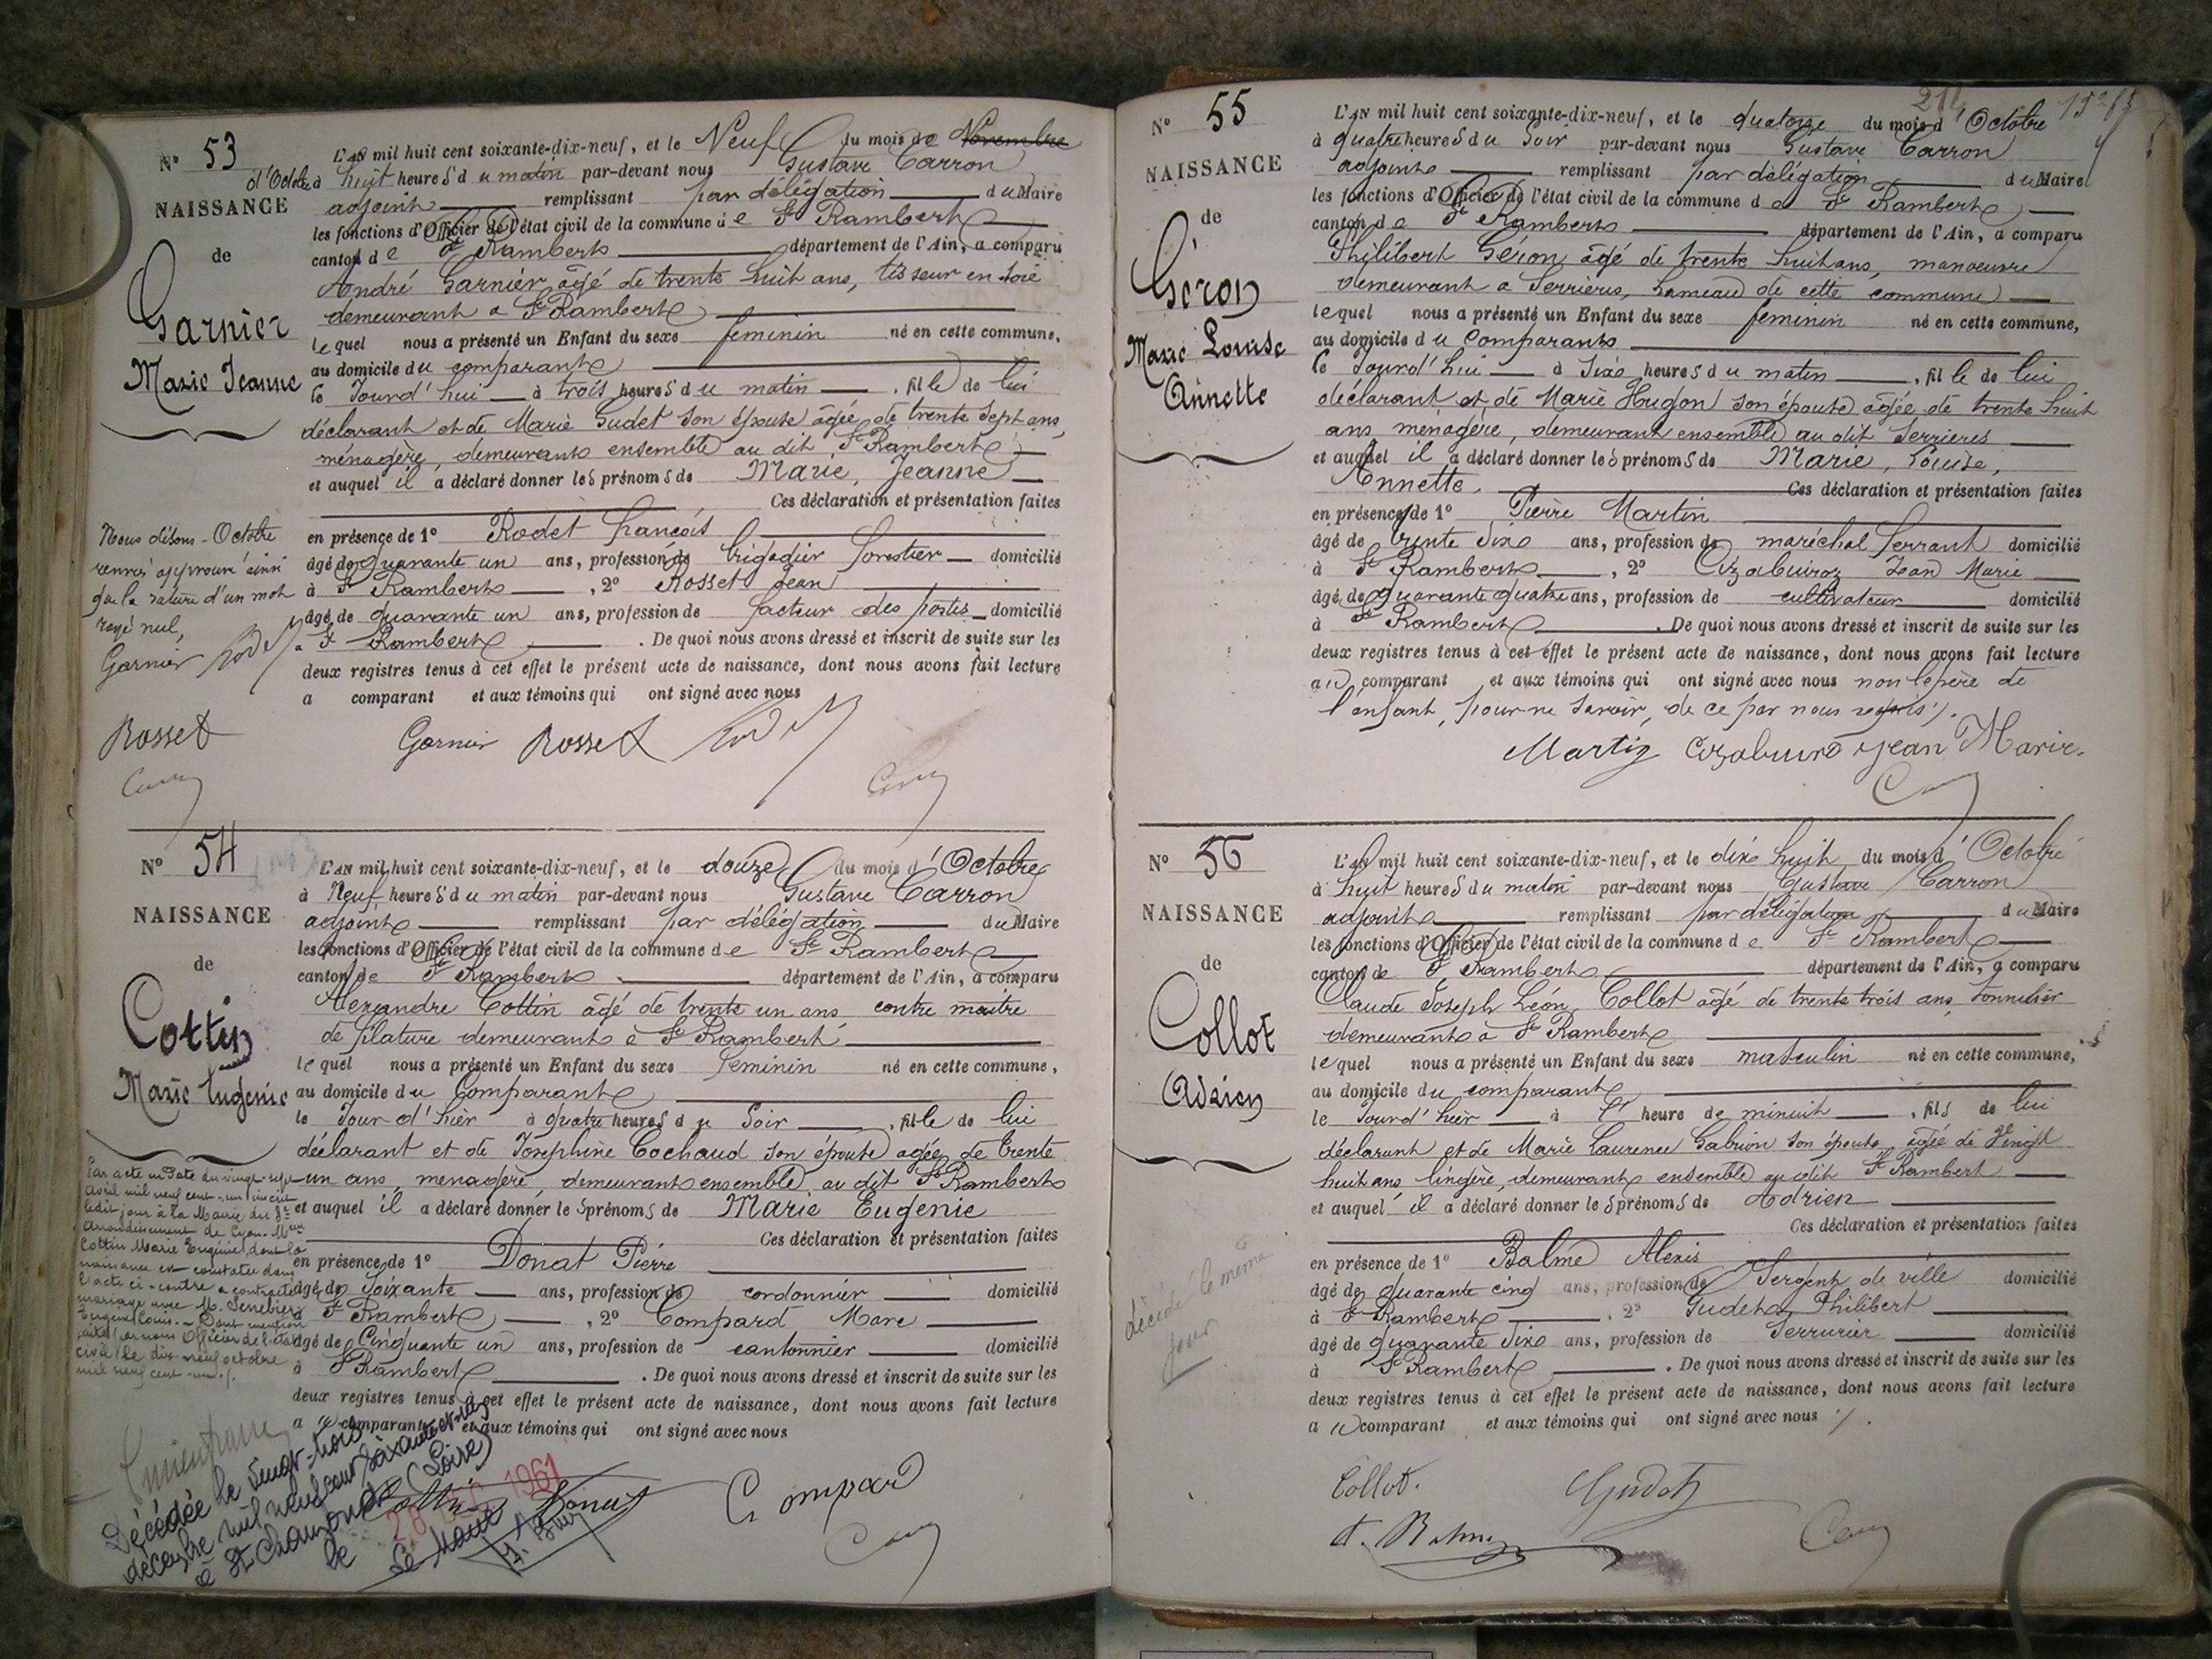 N° 53
NAISSANCE
de
Garnier
Marie Jeanne
L'AN mil huit cent soixante-dix-neuf, et le Neuf du mois de Novembre
d'Octobre à huit heures du matin par-devant nous Gustave Carron
adjoint remplissant par délégation du Maire
les fonctions d'Officier de l'état civil de la commune de St Rambert
canton de St Rambert département de l'Ain, a comparu
André Garnier âgé de trente huit ans, tisseur en soie
demeurant à St Rambert
lequel nous a présenté un Enfant du sexe feminin né en cette commune,
au domicile du comparant
le Jourd'hui à trois heures du matin , fille de lui
déclarant et de Marie Gudet son épouse âgée de trente sept ans,
ménagère, demeurant ensemble au dit St Rambert
et auquel il a déclaré donner les prénoms de Marie, Jeanne
Ces déclaration et présentation faites
en présence de 1° Rodet François
âgé de quarante un ans, profession de brigadier forestier domicilié
à St Rambert , 2° Rosset Jean
âgé de quarante un ans, profession de facteur des postes domicilié
à St Rambert . De quoi nous avons dressé et inscrit de suite sur les
deux registres tenus à cet effet le présent acte de naissance, dont nous avons fait lecture
a comparant et aux témoins qui ont signé avec nous
Nous disons - Octobre
renvoi approuvé ainsi
que la rature d'un mot
rayé nul,
Garnier
Rosset
Garnier Rosset
N° 54
NAISSANCE
de
Cottin
Marie Eugénie
L'AN mil huit cent soixante-dix-neuf, et le douze du mois d'Octobre
à Neuf heures du matin par-devant nous Gustave Carron
adjoint remplissant par délégation du Maire
les fonctions d'Officier de l'état civil de la commune de St Rambert
canton de St Rambert département de l'Ain, a comparu
Alexandre Cottin âgé de trente un ans contre maitre
de filature demeurant à St Rambert
lequel nous a présenté un Enfant du sexe feminin né en cette commune,
au domicile du Comparant
le Jour d'hier à quatre heures du Soir , fille de lui
déclarant et de Joséphine Cochaud son épouse agée de trente
un ans, menagère, demeurant ensemble au dit St Rambert
et auquel il a déclaré donner les prénoms de Marie Eugenie
Ces déclaration et présentation faites
en présence de 1° Donat Pierre
âgé de Soixante ans, profession de cordonnier domicilié
à St Rambert , 2° Compard Marc
âgé de Cinquante un ans, profession de cantonnier domicilié
à St Rambert . De quoi nous avons dressé et inscrit de suite sur les
deux registres tenus à cet effet le présent acte de naissance, dont nous avons fait lecture
au comparant et aux témoins qui ont signé avec nous
Par acte en date du vingt-sept
avril mil neuf cent-un inscrit
ledit jour à la Mairie du 3e
arrondissement de Lyon. Melle
Cottin Marie Eugénie, dont la
naissance est constatée dans
l'acte ci-contre a contracté
mariage avec M. Senebier
Eugène Louis. - Dont mention
faite par nous Officier de l'état
civil le dix-neuf octobre
mil neuf cent-un ./.
Décédée le vingt-trois
décembre mil neuf cent soixante et un
à St Chamond (Loire)
le 28 DEC 1961
Le Maire
Cottin Donat Compard
N° 55
NAISSANCE
de
Géron
Marie Louise
Annette
L'AN mil huit cent soixante-dix-neuf, et le quatorze du mois d'Octobre
à quatre heures du Soir par-devant nous Gustave Carron
adjoint remplissant par délégation du Maire
les fonctions d'Officier de l'état civil de la commune de St Rambert
canton de St Rambert département de l'Ain, a comparu
Philibert Géron âgé de trente huit ans, manoeuvre
demeurant à Serrières, hameau de cette commune
lequel nous a présenté un Enfant du sexe feminin né en cette commune,
au domicile du Comparant
le Jourd'hui à Six heures du matin , fille de lui
déclarant et de Marie Hugon son épouse âgée de trente huit
ans, ménagère, demeurant ensemble au dit Serrieres
et auquel il a déclaré donner les prénoms de Marie, Louise,
Annette. Ces déclaration et présentation faites
en présence de 1° Pierre Martin
âgé de trente Six ans, profession de maréchal ferrant domicilié
à St Rambert , 2° Cozabuiroz Jean Marie
âgé de quarante quatre ans, profession de cultivateur domicilié
à St Rambert . De quoi nous avons dressé et inscrit de suite sur les
deux registres tenus à cet effet le présent acte de naissance, dont nous avons fait lecture
au comparant et aux témoins qui ont signé avec nous non le père de
l'enfant, pour ne savoir, de ce par nous requis ./.
Martin Jean Marie
N° 56
NAISSANCE
de
Collot
Adrien
L'AN mil huit cent soixante-dix-neuf, et le dix huit du mois d'Octobre
à huit heures du matin par-devant nous Gustave Carron
adjoint remplissant par délégation du Maire
les fonctions d'Officier de l'état civil de la commune de St Rambert
canton de St Rambert département de l'Ain, a comparu
Claude Joseph Léon Collot âgé de trente trois ans, tonnelier
demeurant à St Rambert
lequel nous a présenté un Enfant du sexe masculin né en cette commune,
au domicile du comparant
le Jourd'hier à l' heure de minuit , fils de lui
déclarant et de Marie Laurence Gabrion son épouse âgée de vingt
huit ans lingère, demeurant ensemble au dit St Rambert
et auquel il a déclaré donner les prénoms de Adrien
Ces déclaration et présentation faites
en présence de 1° Balme Alexis
âgé de quarante cinq ans, profession de Sergent de ville domicilié
à St Rambert , 2° Gudet Philibert
âgé de quarante Six ans, profession de Serrurier domicilié
à St Rambert . De quoi nous avons dressé et inscrit de suite sur les
deux registres tenus à cet effet le présent acte de naissance, dont nous avons fait lecture
au comparant et aux témoins qui ont signé avec nous ./.
décédé le même
jour
Collot. Gudet